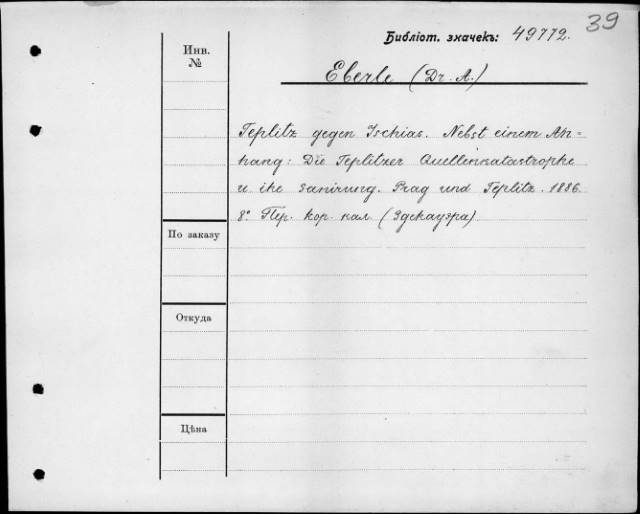 39
Библіот. значекъ: 49772.
Инв.
№
Eberle (Dr. A.)
Teplitz gegen Ischias. Nebst einem An=
hang: Die Teplitzer Quellenkatastrophe
u. ihe Sanirung. Prag und Teplitz. 1886.
8° Пер. кор. кал. (Эдскауэра)
По заказу
Откуда
Цѣна